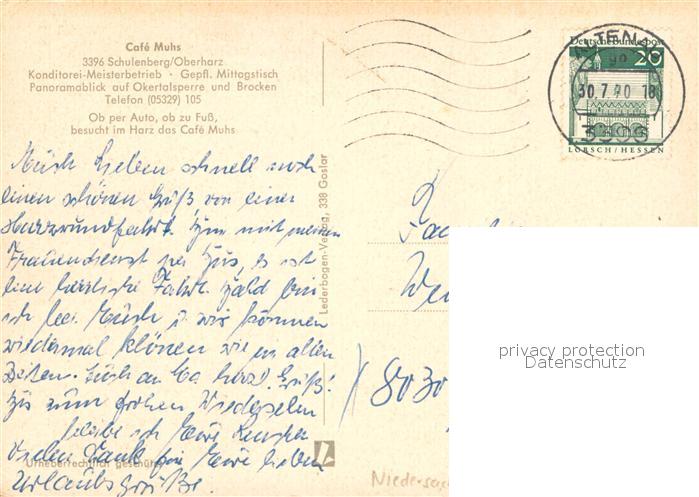 Café Muhs
3396 Schulenberg/Oberharz
Konditorei-Meisterbetrieb · Gepfl. Mittagstisch
Panoramablick auf Okertalsperre und Brocken
Telefon (05329) 105
Ob per Auto, ob zu Fuß,
besucht im Harz das Café Muhs
Euch Lieben schnell noch
einen schönen Gruß von einer
Harzrundfahrt. Bin mit meinem
Frauendienst per Bus, es ist
eine herrliche Fahrt. Bald bin
ich bei Euch u. wir können
wiedermal klönen wie in alten
Zeiten. Euch an herzl. Grüße!
Bis zum frohen Wiedersehen
bleibe ich Eure
Vielen Dank für Eure lieben
Urlaubsgrüße.
Urheberrechtlich geschützt
Lederbogen-Verlag, 338 Goslar
ALTENAU
30.7.70 18
3396
Deutsche Bundespost
20
LORSCH/HESSEN
8030
Niedersa
privacy protection
Datenschutz